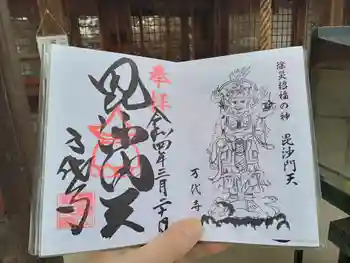 奉拝
令和四年三月二十日
毘沙門天
万代寺
除災招福の神
毘沙門天
万代寺